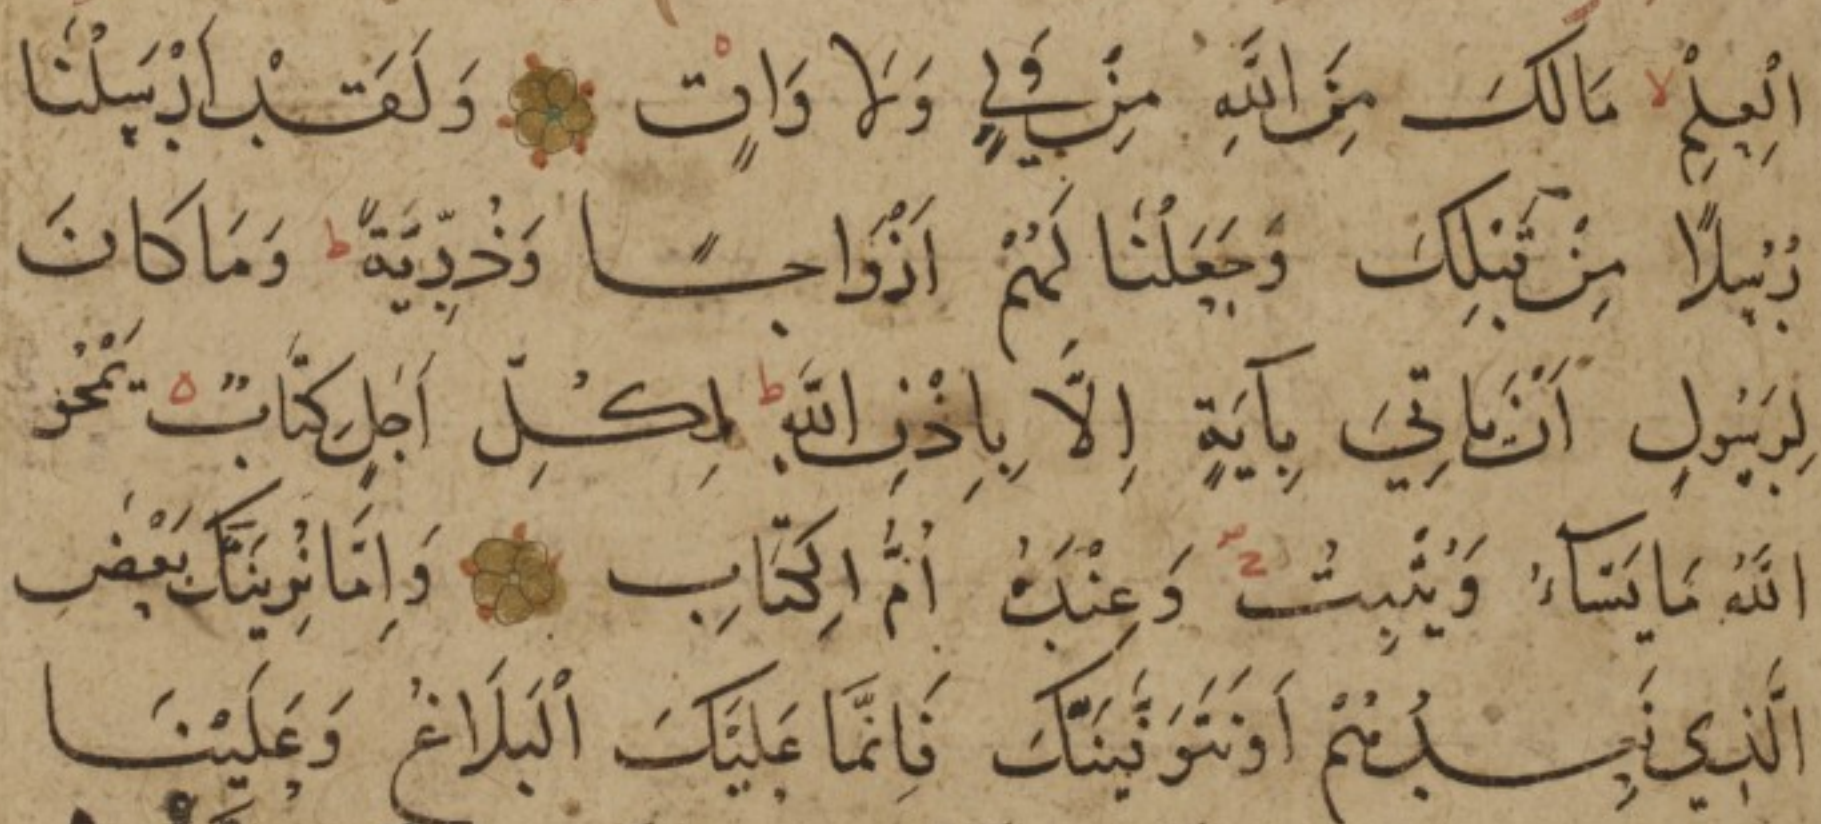 الْعِلْمِ لا مَالَكَ مِنَ اللّٰهِ مِنْ وَلِيٍّ وَلَا وَاقٍ ه وَلَقَدْ اَرْسَلْنَا
رُسُلًا مِنْ قَبْلِكَ وَجَعَلْنَا لَهُمْ اَزْوَاجًا وَذُرِّيَّةً ط وَمَا كَانَ
لِرَسُولٍ اَنْ يَاتِيَ بِآيَةٍ اِلَّا بِاِذْنِ اللّٰهِ ط لِكُلِّ اَجَلٍ كِتَابٌ ه يَمْحُو
اللّٰهُ مَا يَشَآءُ وَيُثْبِتُ وَعِنْدَهُ اُمُّ الْكِتَابِ وَاِمَّا نُرِيَنَّكَ بَعْضَ
الَّذِي نَعِدُهُمْ اَوْ نَتَوَفَّيَنَّكَ فَاِنَّمَا عَلَيْكَ الْبَلَاغُ وَعَلَيْنَا